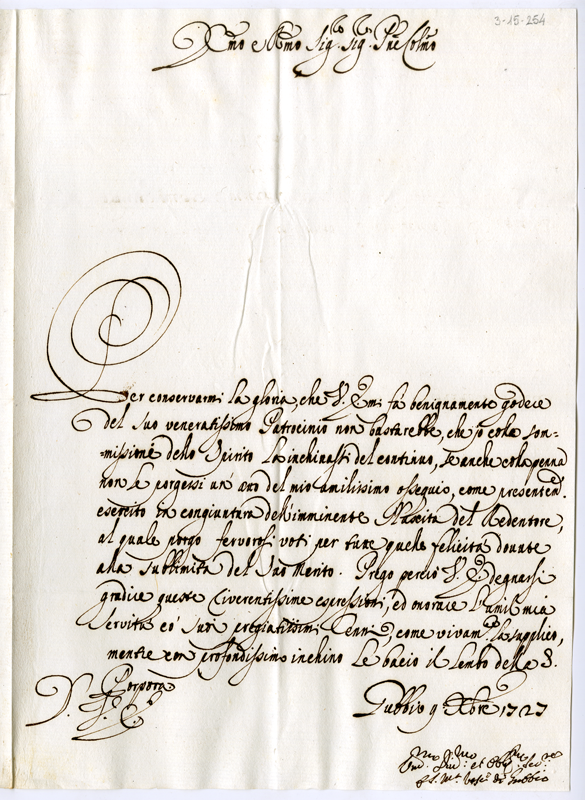 3-15-254
Emo e Rmo Sig.r Sig.r Pne Colmo
Per conservarmi la gloria, che V. Em. mi fa benignamente godere
del suo veneratissimo Patrocinio non bastarebbe, che io colla som=
missione dello Spirito la inchinassi del continuo, se anche colla penna
non le porgessi un atto del mio umilissimo ossequio, come presentem.e
esercito in congiuntura dell'imminente Nascita del Redentore,
al quale porgo fervorosi voti per tutte quelle felicità dovute
alla sublimità del Suo Merito. Prego perciò V. E. degnarsi
gradire queste riverentissime espressioni, ed onorare l'umil mia
servitù co' suoi pregiatissimi Cenni, come vivam.te la supplico,
mentre con profondissimo inchino le bacio il lembo della S.
Porpora
D. V. E.
Gubbio 9 Xbre 1727
Um̃o Div̄mo et Obl. Ser.e
f. S. M.a Vesc.o di Gubbio